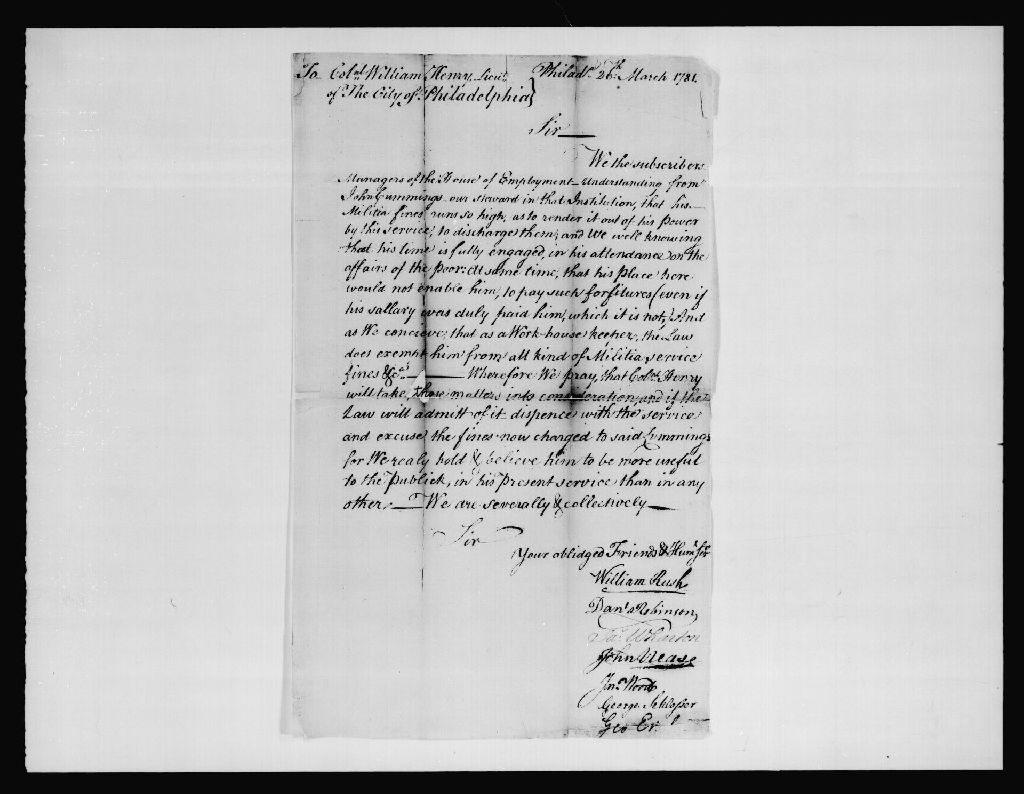 To Colol. William Henry Lieut. Philada. 26th March 1781.
of The City of Philadelphia}
Sir
We the subscribers
Managers of the House of Employment understanding from
John Cummings our steward in that Institution, that his
Militia fines runs so high, as to render it out of his power
by this service, to discharge them, and We well knowing
that his time is fully engaged, in his attendance on the
affairs of the poor: At same time, that his place here
would not enable him, to pay such forfitures (even if
his sallary was duly paid him, which it is not,) And
as We concieve, that as a Work-house keeper, the Law
does exempt him from all kind of Militia service
fines &ca. Wherefore We pray, that Colol. Henry
will take, those matters into consideration, and if the
Law will admitt of it dispence with the service
and excuse the fines now charged to said Cummings
for We realy hold & believe him to be more useful
to the Publick, in his present service than in any
other. We are severally & collectively
Sir
Your oblidged Friends & Hum. Srs
William Rush
Danl. Robinson
Ja. Wharton
John Nease
Jno. Woods
George Schlosser
Geo Er